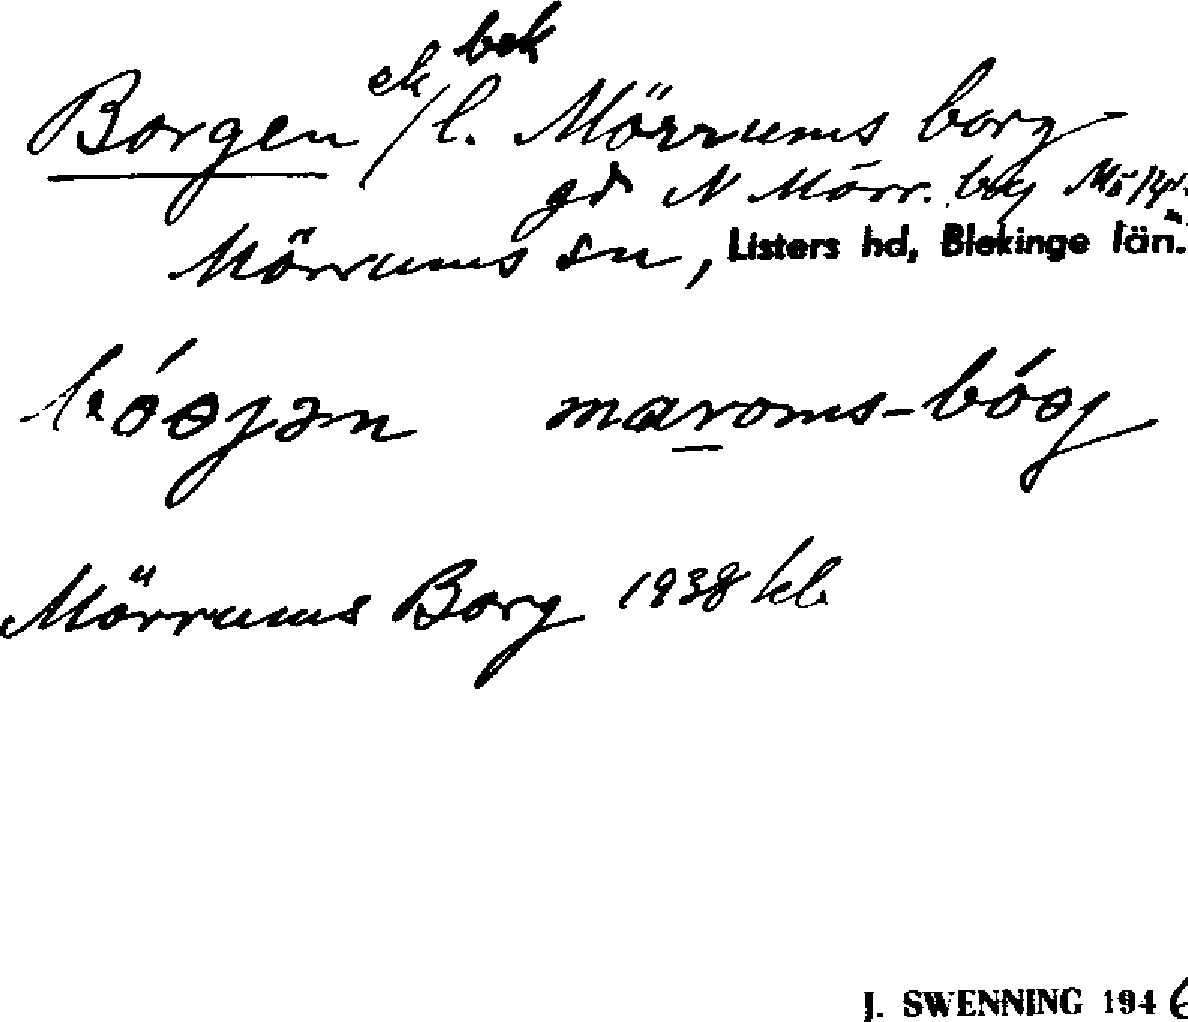 bek
Borgen ek / l. Mörrums borg
gd N Mörr. by
Mörrums sn, Listers hd, Blekinge län.
bóɵjən marɵms-bóɵj
Mörrums Borg 1938 kb
J. SWENNING 1946